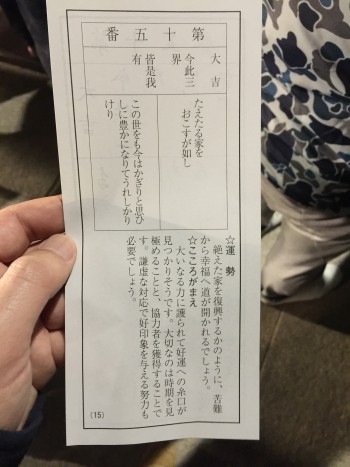 第十五番
大吉
今此三界
皆是我有
たえたる家を
おこすが如し
この世をも今はかぎりと思ひ
しに豊かになりてうれしかり
けり
☆運勢
絶えた家を復興するかのように、苦難
から幸福へ道が開かれるでしょう。
☆こころがまえ
大いなる力に護られて好運への糸口が
見つかりそうです。大切なのは時期を見
極めることと、協力者を獲得することで
す。謙虚な対応で好印象を与える努力も
必要でしょう。
(15)